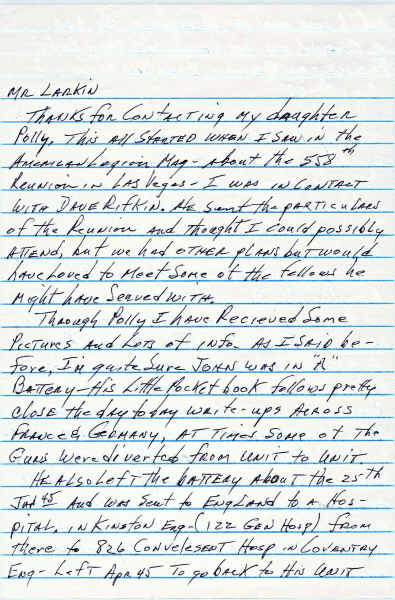 MR LARKIN
THANKS for CONTACTING my daughter
Polly, This All Started WHEN I SAW in the
AMERICAN Legion MAG- About the 558th
Reunion in LAS Vegas- I was in CONTACT
WITH DAVE RIFKIN. He Sent the particulars
of the Reunion and thought I could possibly
ATTEND, but we had OTHER plans but would
have Loved to Meet Some of the fellows he
Might have Served with.
Through Polly I have Recieved Some
Pictures and Lots of info. As I SAID be-
fore, I'm quite Sure JOHN was in "A"
BATTERY- His Little Pocket book follows pretty
CLOSE the day today write-ups Across
FRANCE & GERMANY, AT Times Some of The
Guns Were diverted from UNIT to UNIT.
HE Also Left the battery about the 25th
Jan 45 And was Sent to ENGLAND to a Hos-
pital, in Kinston Eng-(122 Gen Hosp) from
there to 826 Convelesent Hosp in COVENTRY
Eng- Left Apr 45 To go back to His UNIT